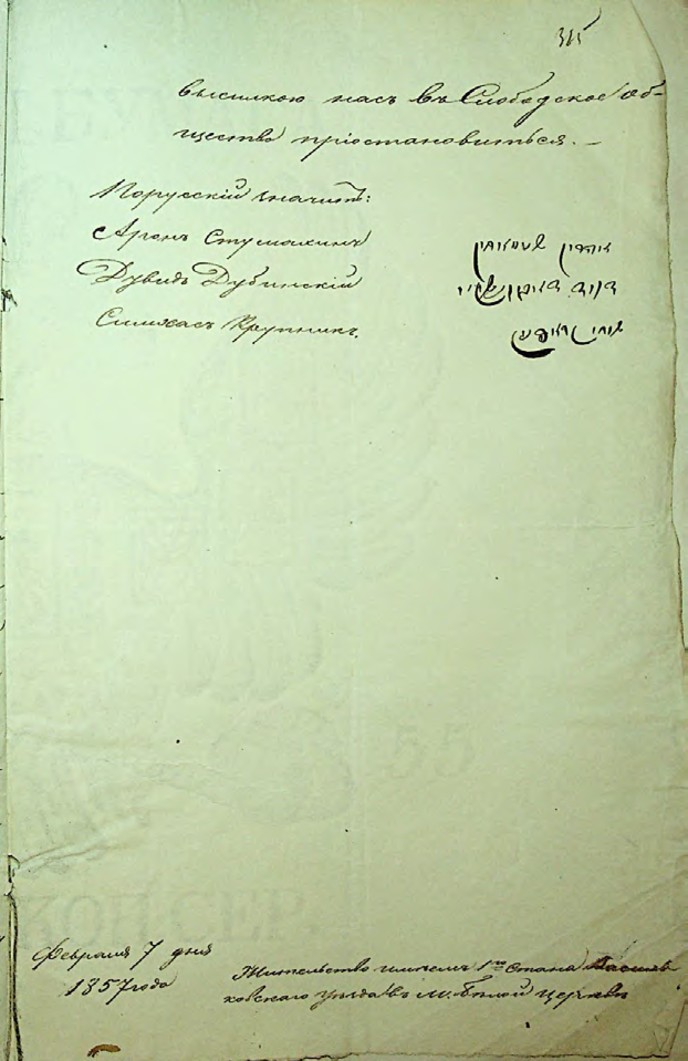 315
высылкою насъ въ Слободское об-
щество пріостановиться. —
Порусски значитъ:
Аронъ Стумахинъ
Дувидъ Дубинскій
Симхасъ Крупникъ.
55
КОП. СЕР.
Февраля 7 дня
1857 года
Жительство имѣемъ 1го Стана Василь
ковскаго уѣзда въ м. Бѣлой Церкви